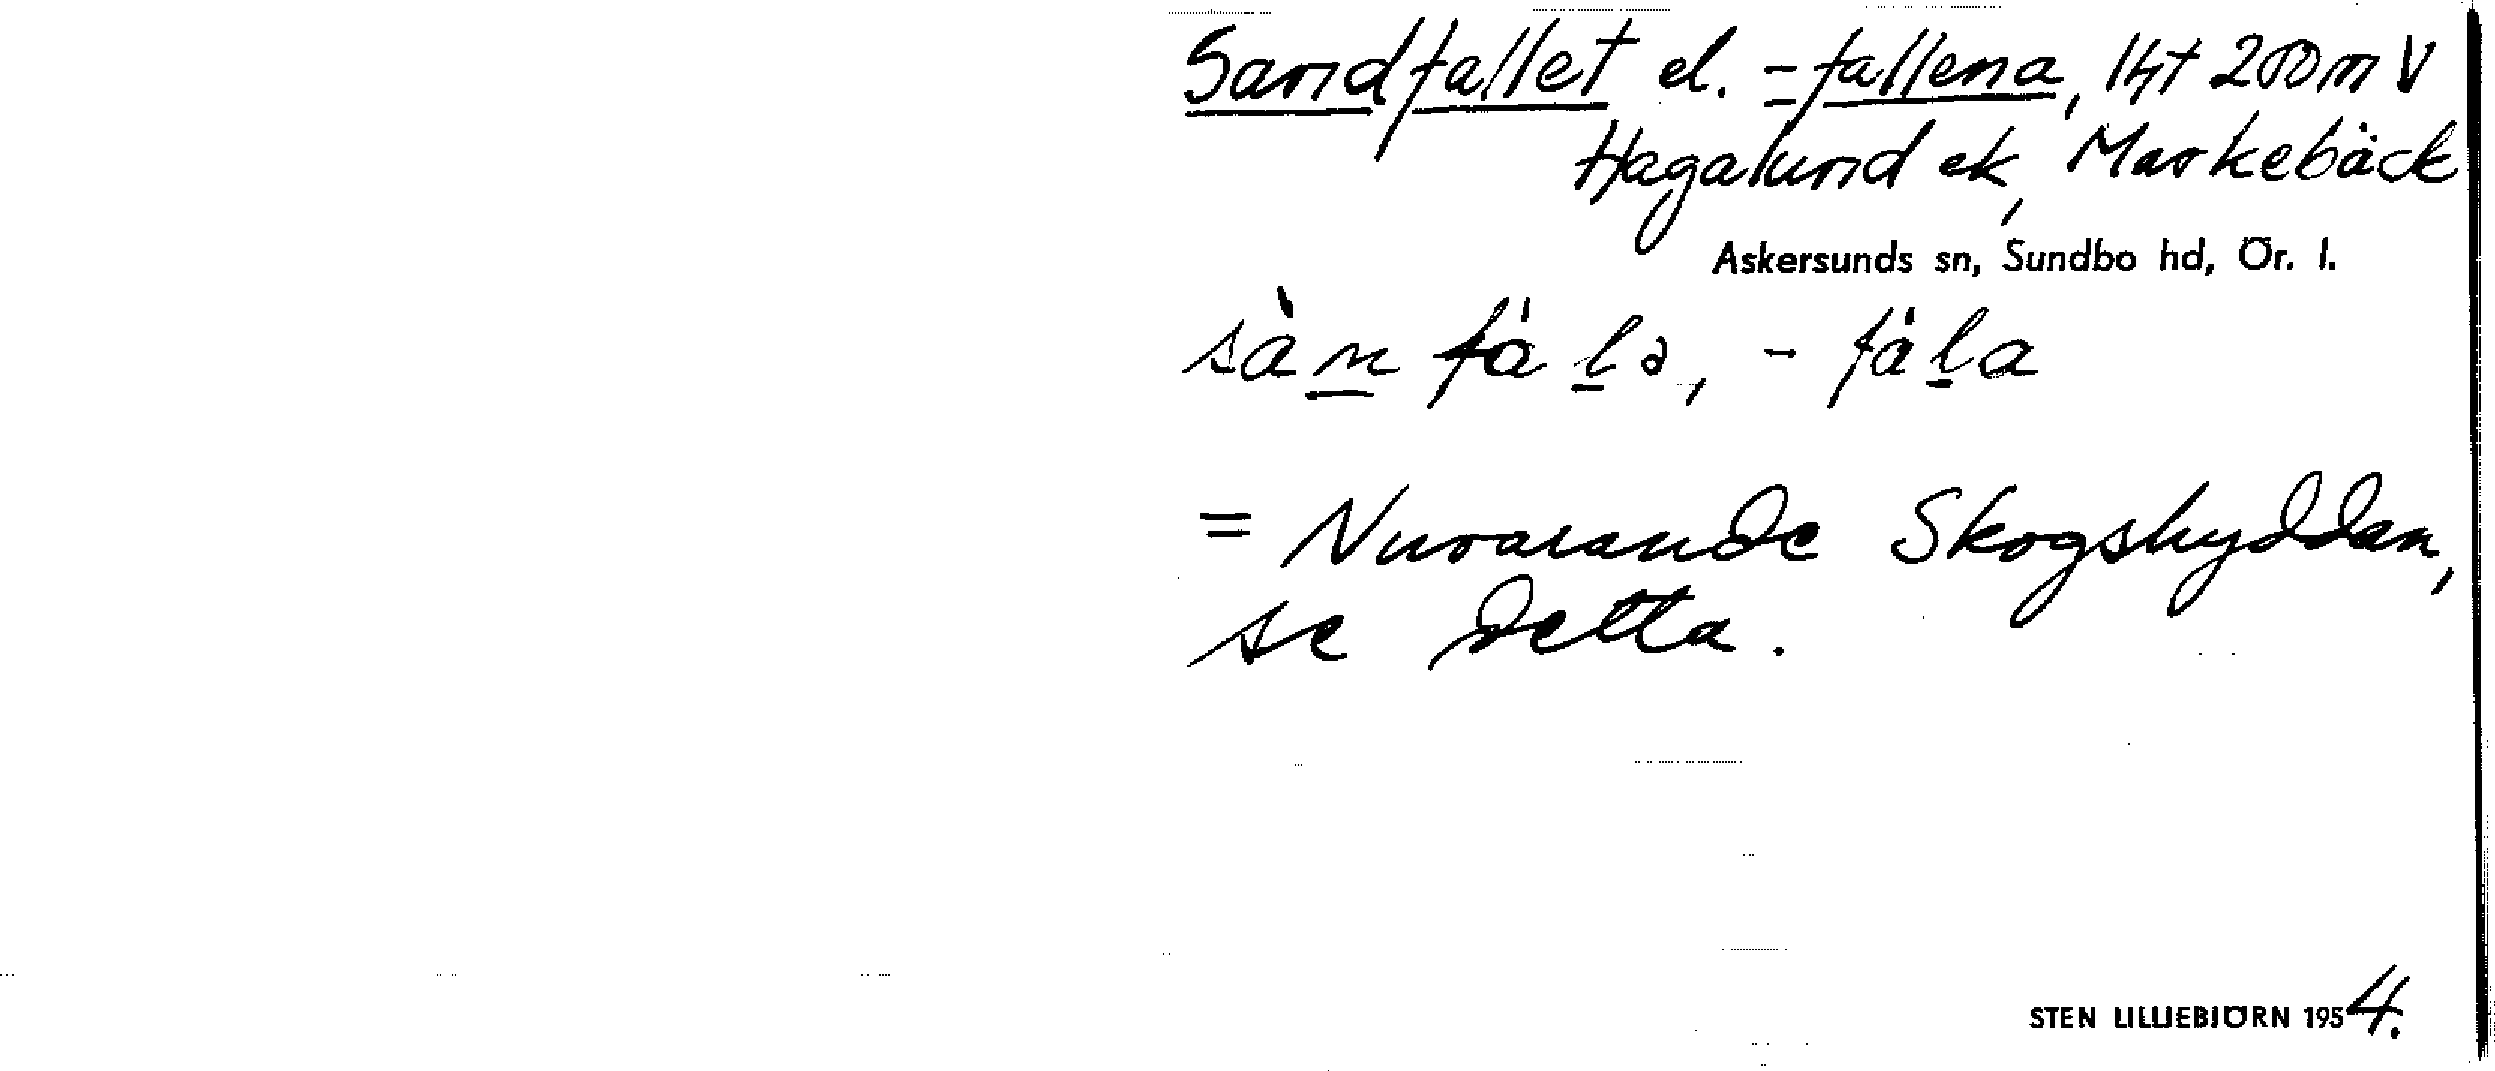 Sandfallet el. =fallena, lht 200 m V
Hagalund ek, Markebäck
Askersunds sn, Sundbo hd, Ör. l.
sàn fa̍lə, - fa̍la
= Nuvarande Skogshyddan,
se detta.
STEN LILLIEBJÖRN 1954.